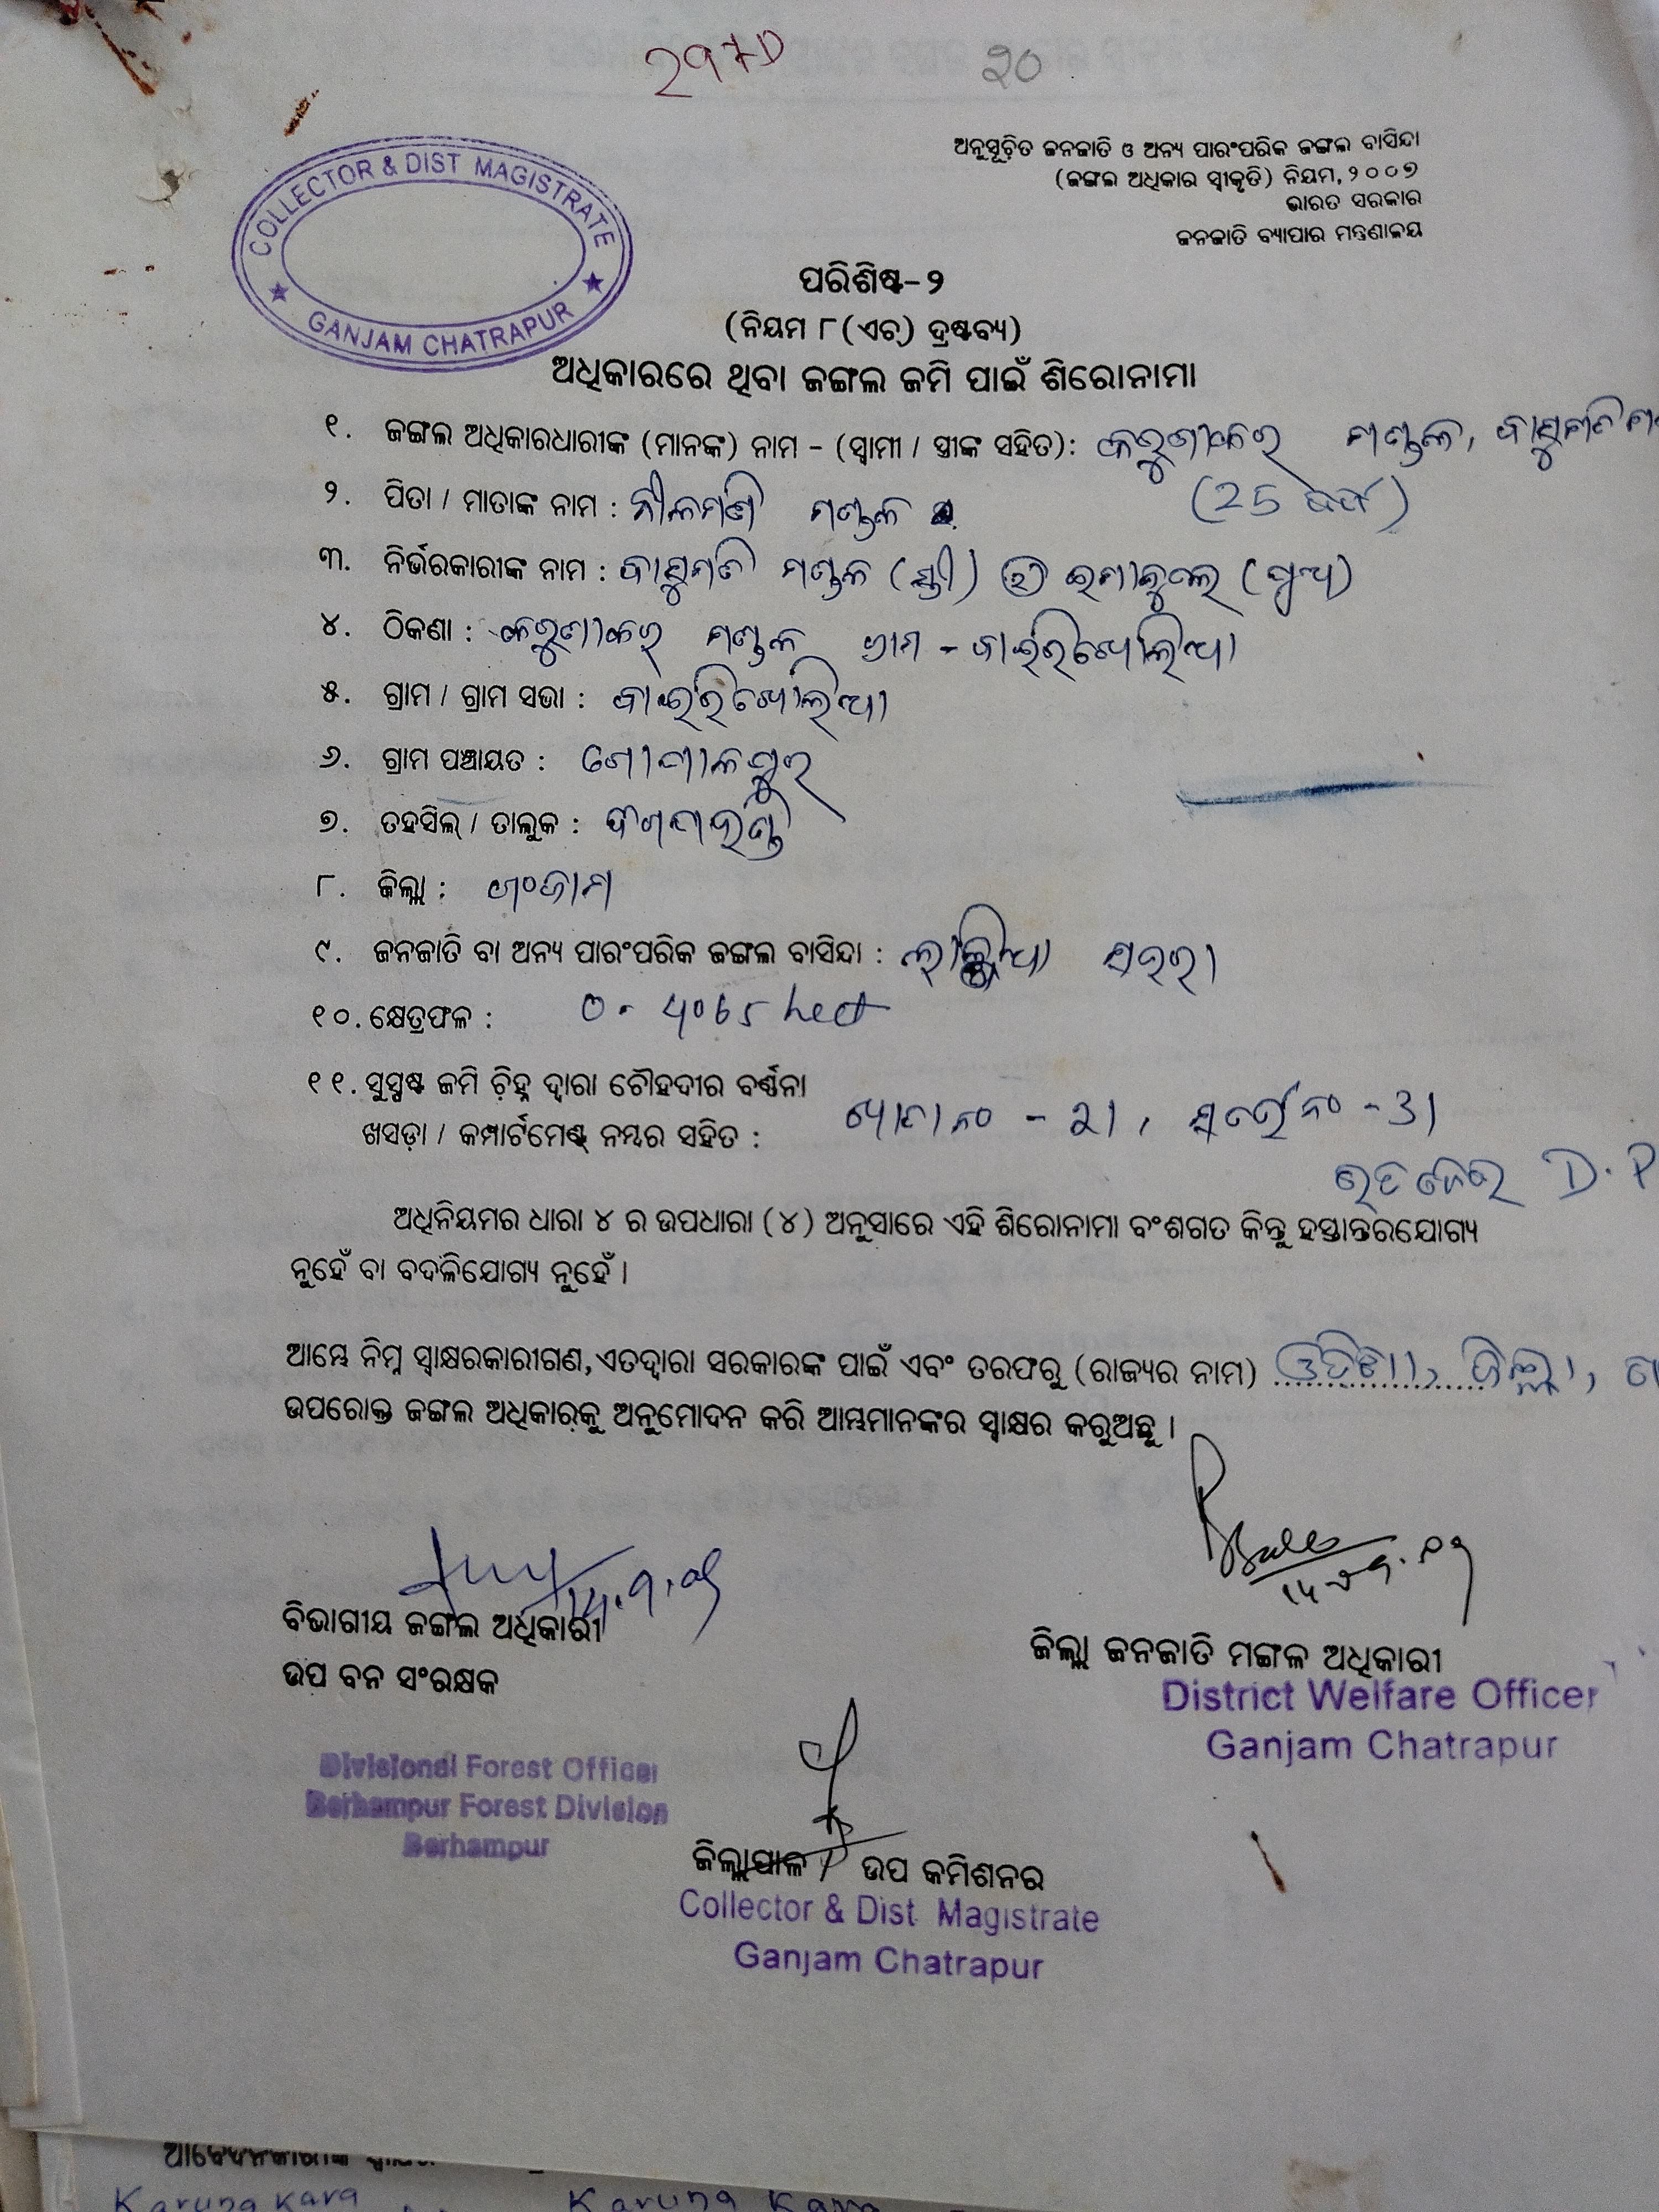 20
COLLECTOR & DIST MAGISTRATE
GANJAM CHATRAPUR
ଅନୁସୂଚିତ ଜନଜାତି ଓ ଅନ୍ୟ ପାରଂପରିକ ଜଙ୍ଗଲ ବାସିନ୍ଦା
(ଜଙ୍ଗଲ ଅଧିକାର ସ୍ୱୀକୃତି) ନିୟମ, ୨୦୦୭
ଭାରତ ସରକାର
ଜନଜାତି ବ୍ୟାପାର ମନ୍ତ୍ରଣାଳୟ
ପରିଶିଷ୍ଟ-୨
(ନିୟମ ୮(ଏଚ୍) ଦ୍ରଷ୍ଟବ୍ୟ)
ଅଧିକାରରେ ଥିବା ଜଙ୍ଗଲ ଜମି ପାଇଁ ଶିରୋନାମା
୧. ଜଙ୍ଗଲ ଅଧିକାରଧାରୀଙ୍କ (ମାନଙ୍କ) ନାମ - (ସ୍ୱାମୀ / ସ୍ତ୍ରୀଙ୍କ ସହିତ): କରୁଣାକର ମଣ୍ଡଳ, ବାସୁମତି
(25 ବର୍ଷ)
୨. ପିତା / ମାତାଙ୍କ ନାମ : ନୀଳମଣି ମଣ୍ଡଳ
୩. ନିର୍ଭରକାରୀଙ୍କ ନାମ : ବାସୁମତି ମଣ୍ଡଳ (ସ୍ତ୍ରୀ) ଇମାନୁଏଲ (ପୁଅ)
୪. ଠିକଣା : କରୁଣାକର ମଣ୍ଡଳ ଗ୍ରାମ - ବାଇରିଖୋଲିଆ
୫. ଗ୍ରାମ / ଗ୍ରାମ ସଭା : ବାଇରିଖୋଲିଆ
୬. ଗ୍ରାମ ପଞ୍ଚାୟତ : ଗୋପାଳପୁର
୭. ତହସିଲ୍ / ତାଲୁକ : ଦିଗପହଣ୍ଡି
୮. ଜିଲ୍ଲା : ଗଂଜାମ
୯. ଜନଜାତି ବା ଅନ୍ୟ ପାରଂପରିକ ଜଙ୍ଗଲ ବାସିନ୍ଦା : ଲାଞ୍ଜିଆ ସଉରା
୧୦. କ୍ଷେତ୍ରଫଳ : hect
୧୧. ସୁସ୍ପଷ୍ଟ ଜମି ଚିହ୍ନ ଦ୍ୱାରା ଚୌହଦୀର ବର୍ଣ୍ଣନା
ଖସଡ଼ା / କମ୍ପାର୍ଟମେଣ୍ଟ୍ ନମ୍ବର ସହିତ :
D.P
ଅଧିନିୟମର ଧାରା ୪ ର ଉପଧାରା (୪) ଅନୁସାରେ ଏହି ଶିରୋନାମା ବଂଶଗତ କିନ୍ତୁ ହସ୍ତାନ୍ତରଯୋଗ୍ୟ
ନୁହେଁ ବା ବଦଳିଯୋଗ୍ୟ ନୁହେଁ ।
ଆମ୍ଭେ ନିମ୍ନ ସ୍ୱାକ୍ଷରକାରୀଗଣ, ଏତଦ୍ଦ୍ୱାରା ସରକାରଙ୍କ ପାଇଁ ଏବଂ ତରଫରୁ (ରାଜ୍ୟର ନାମ) ଓଡିଶା, ଜିଲ୍ଲା,
ଉପରୋକ୍ତ ଜଙ୍ଗଲ ଅଧିକାରକୁ ଅନୁମୋଦନ କରି ଆମ୍ଭମାନଙ୍କର ସ୍ୱାକ୍ଷର କରୁଅଛୁ ।
ବିଭାଗୀୟ ଜଙ୍ଗଲ ଅଧିକାରୀ
ଉପ ବନ ସଂରକ୍ଷକ
Divisional Forest Officer
Berhampur Forest Division
Berhampur
ଜିଲ୍ଲା ଜନଜାତି ମଙ୍ଗଳ ଅଧିକାରୀ
District Welfare Officer
Ganjam Chatrapur
ଜିଲ୍ଲାପାଳ / ଉପ କମିଶନର
Collector & Dist. Magistrate
Ganjam Chatrapur
Karuna Kara Karuna Kara